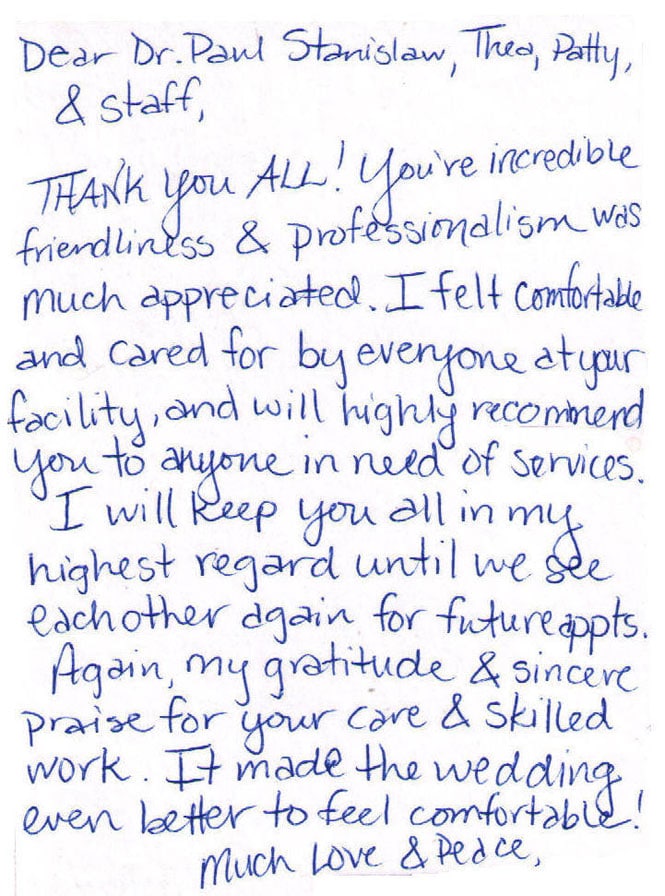 Dear Dr. Paul Stanislaw, Thea, Patty,
& staff,
THANK you ALL! You're incredible
friendliness & professionalism was
much appreciated. I felt comfortable
and cared for by everyone at your
facility, and will highly recommend
you to anyone in need of services.
I will keep you all in my
highest regard until we see
each other again for future appts.
Again, my gratitude & sincere
praise for your care & skilled
work. It made the wedding
even better to feel comfortable!
Much Love & Peace,